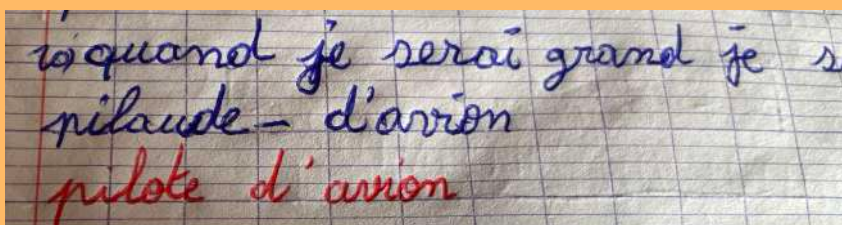 quand je serai grand je s
pilaude - d'avion
pilote d'avion